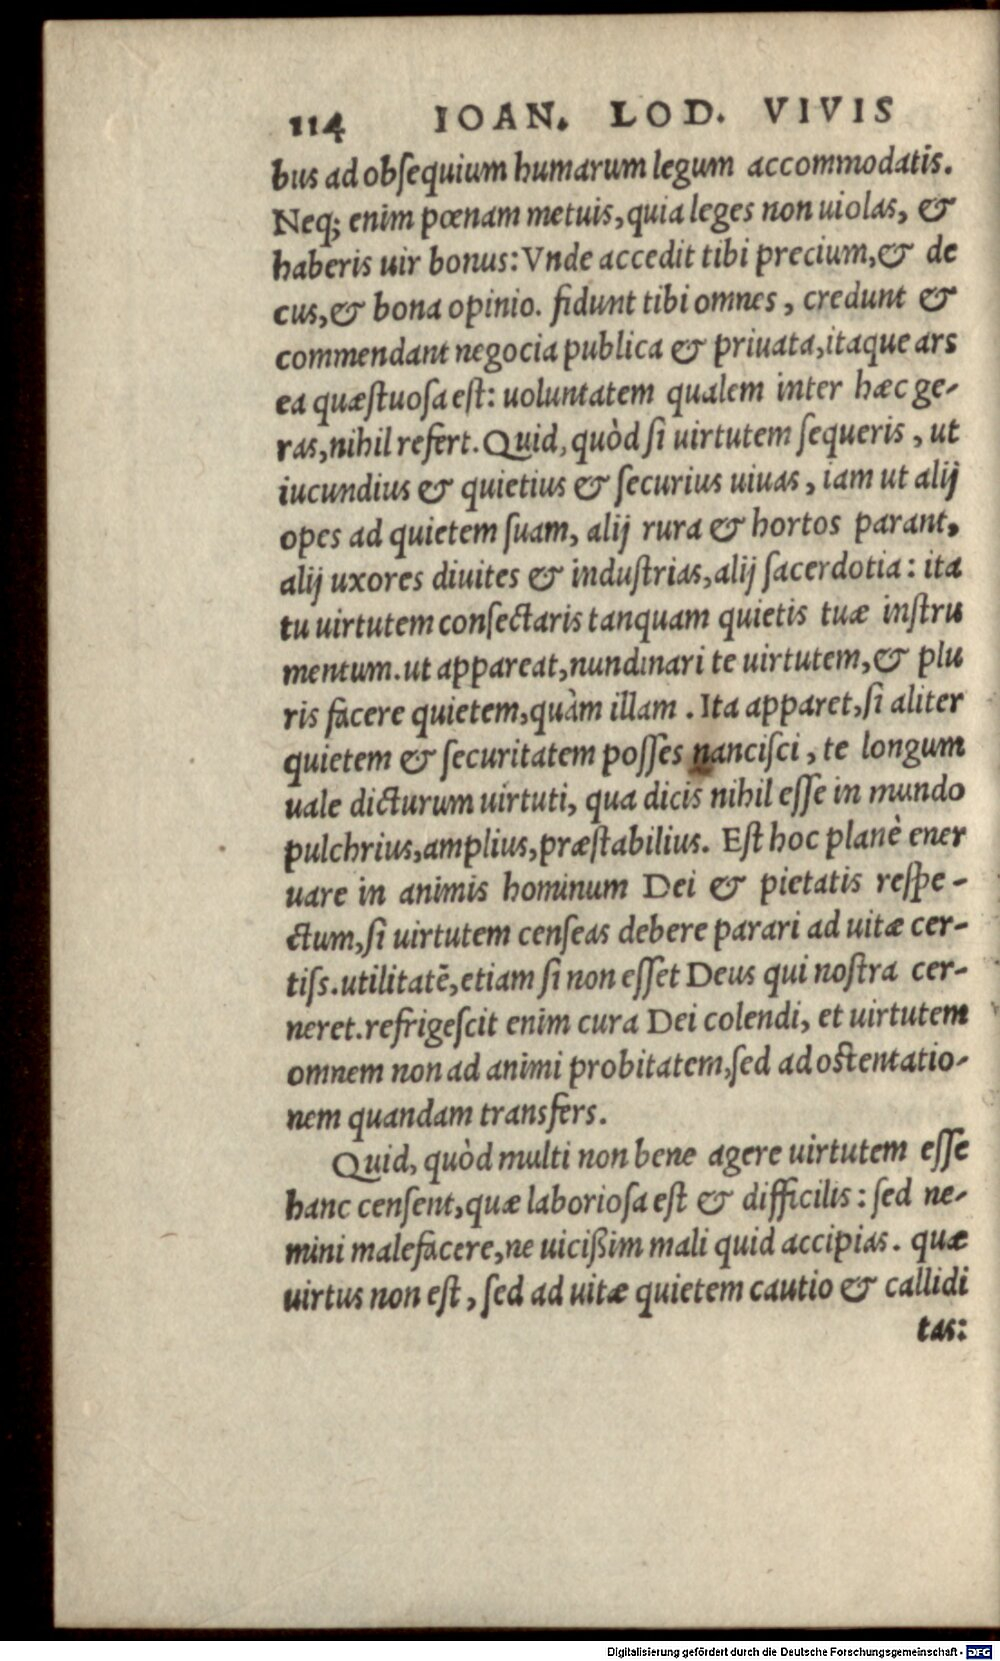 114 IOAN. LOD. VIVIS
bus ad obſequium humarum legum accommodatis.
Neq; enim pœnam metuis, quia leges non uiolas, &
haberis uir bonus: Vnde accedit tibi precium, & de
cus, & bona opinio. fidunt tibi omnes, credunt &
commendant negocia publica & priuata, itaque ars
ea quæſtuoſa eſt: uoluntatem qualem inter hæc ge-
ras, nihil refert. Quid, quòd ſi uirtutem ſequeris, ut
iucundius & quietius & ſecurius uiuas, iam ut alij
opes ad quietem ſuam, alij rura & hortos parant,
alij uxores diuites & induſtrias, alij ſacerdotia: ita
tu uirtutem conſectaris tanquam quietis tuæ inſtru
mentum. ut appareat, nundinari te uirtutem, & plu
ris facere quietem, quàm illam. Ita apparet, ſi aliter
quietem & ſecuritatem poſſes nanciſci, te longum
uale dicturum uirtuti, qua dicis nihil eſſe in mundo
pulchrius, amplius, præſtabilius. Eſt hoc planè ener
uare in animis hominum Dei & pietatis reſpe-
ctum, ſi uirtutem cenſeas debere parari ad uitæ cer-
tiſs. utilitatē, etiam ſi non eſſet Deus qui noſtra cer-
neret. refrigeſcit enim cura Dei colendi, et uirtutem
omnem non ad animi probitatem, ſed ad oſtentatio-
nem quandam transfers.
Quid, quòd multi non bene agere uirtutem eſſe
hanc cenſent, quæ laborioſa eſt & difficilis: ſed ne-
mini malefacere, ne uicißim mali quid accipias. quæ
uirtus non eſt, ſed ad uitæ quietem cautio & callidi
tas:
Digitalisierung gefördert durch die Deutsche Forschungsgemeinschaft - DFG